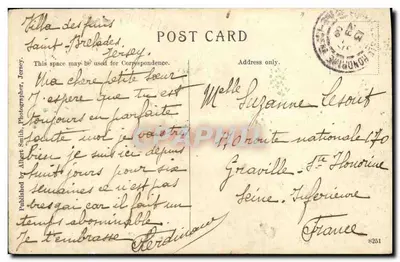 Villa des pins
Saint-Brelades
Jersey.
POST CARD
This space may be used for Correspondence.
Address only.
Ma chère petite sœur
J'espère que tu est
toujours en parfaite
santé moi je vaitrs
bien je suis ici depuis
huit jours pour six
semaines ce n'est pas
bresgai car il fait un
temps abominable
Je t'embrasse Ferdinand
Melle Suzanne Lesout
170 route nationale 170
Graville-Ste Honorine
Seine-Inférieure
France
Published by Albert Smith, Photographer, Jersey.
8251